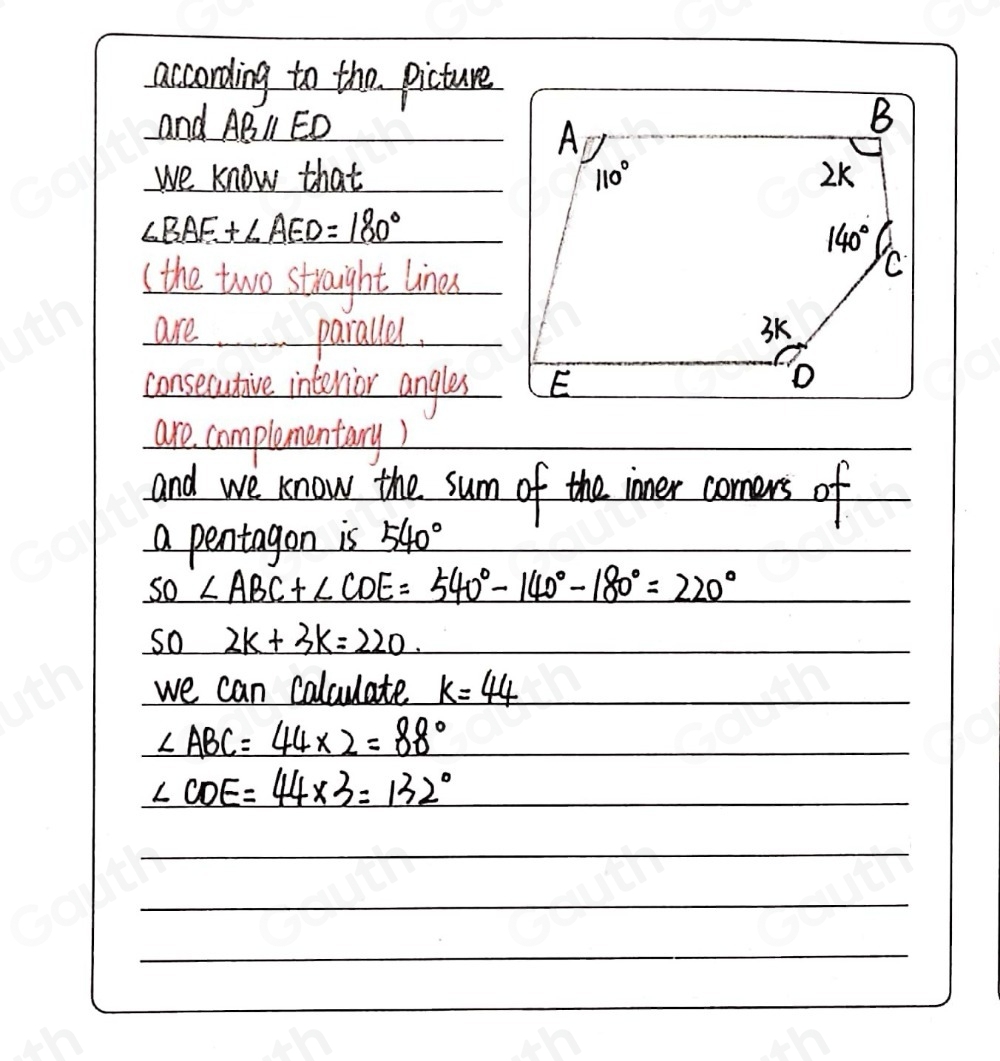 according to the picture
and AB // ED
we know that
∠BAE + ∠AED = 180°
( the two straight lines
are ...... parallel,
consecutive interior angles
are complementary )
and we know the sum of the inner corners of
a pentagon is 540°
so ∠ABC + ∠CDE = 540° - 140° - 180° = 220°
so 2K + 3K = 220.
we can calculate K = 44
∠ABC = 44 × 2 = 88°
∠CDE = 44 × 3 = 132°
A
B
110°
2K
140°
C
3K
E
D
Gauth